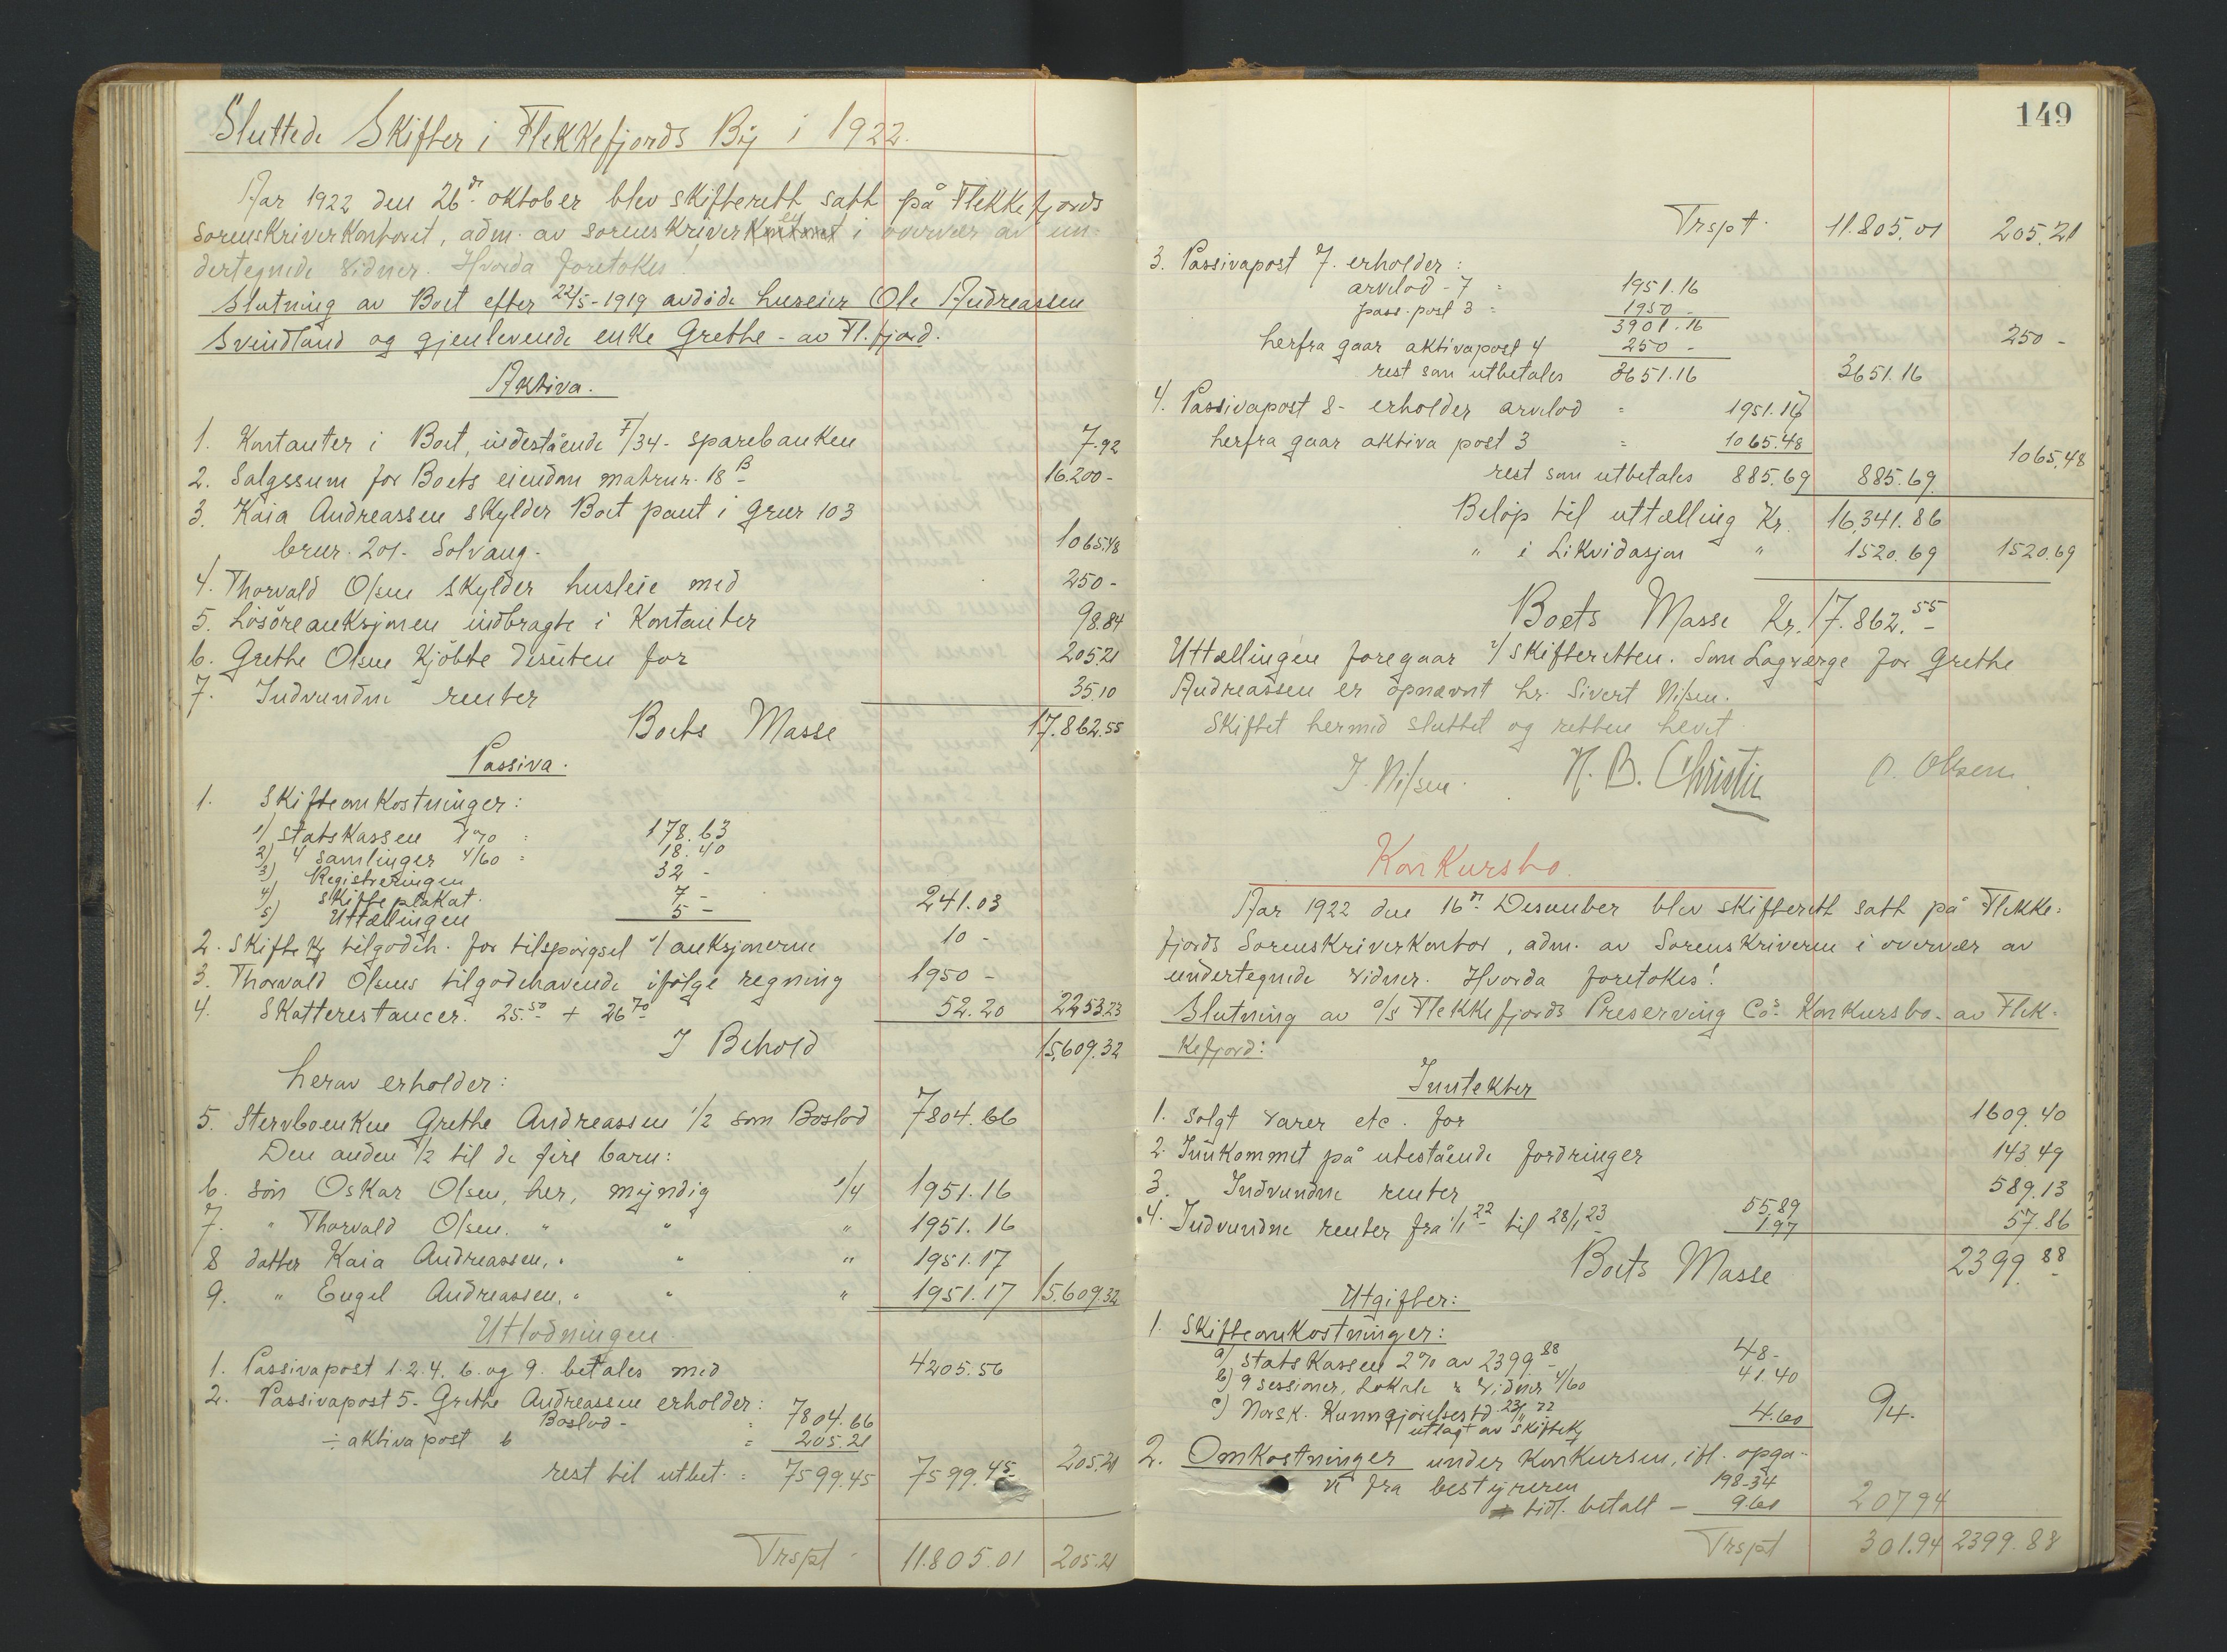 Sluttede Skifter i Flekkefjords By i 1922.
Aar 1922 den 26de oktober blev skifterett satt på Flekkefjords
Sorenskriverkontoret, adm. av sorenskriveren i overvær av un-
dertegnede vidner. Hvorda foretokes!
Slutning av Boet efter 22/5-1919 avdøde huseier Ole Andreassen
Svindland og gjenlevende enke Grethe - av Fl.fjord.
Aktiva.
1. Kontanter i Boet, indestående F/34 - sparebanken 7.92
2. Salgssum for Boets eiendom matrnr. 18 B 16.200 -
3. Kaia Andreassen skylder Boet pant i grnr 103
brnr. 201 - Solvang - 1065.48
4. Thorvald Olsen skylder husleie med 250 -
5. Løsøreauksjonen indbragte i Kontanter 98.84
6. Grethe Olsen Kjøbte desuten for 205.21
7. Indvundne renter 35.10
Boets Masse 17.862.55
Passiva.
1. Skifteomkostninger:
1) Statskassen 1% = 178.63
2) 4 samlinger 4/60 = 18.40
3) Registreringen 32 -
4) Skifteplakat. 7 -
5) Uttællingen 5 - 241.03
2. SkifteK tilgodeh. for tilspørgsel v/ auksjonerne 10 -
3. Thorvald Olsens tilgodehavende ifølge regning 1950 -
4. Skatterestancer. 25.50 + 26.70 52.20 2253.23
I Behold 15.609.32
herav erholder:
5. Stervboenken Grethe Andreassen 1/2 som Boslod 7804.66
Den anden 1/2 til de fire barn:
6. søn Oskar Olsen, her, myndig 1/4 1951.16
7. " Thorvald Olsen. " " " 1951.16
8 datter Kaia Andreassen, " " " 1951.17
9. " Engel Andreassen, " " " 1951.17 15.609.32
Utlodningen.
1. Passivapost 1. 2. 4. 6. og 9. betales med 4205.56
2. Passivapost 5 - Grethe Andreassen erholder:
Boslod - = 7804.66
÷ aktiva post 6 = 205.21 205.21
rest til utbet. = 7599.45 7599.45
Trspt - 11.805.01 205.21
149
Trspt - 11.805.01 205.21
3. Passivapost 7. erholder:
arvelod - 7 = 1951.16
pass. post 3 = 1950 -
3901.16
herfra gaar aktivapost 4 250 - 250 -
rest som utbetales 3651.16 3651.16
4. Passivapost 8 - erholder arvelod = 1951.17
herfra gaar aktiva post 3 = 1065.48 1065.48
rest som utbetales 885.69 885.69
Beløp til uttælling Kr. 16.341.86
" i Likvidasjon " 1520.69 1520.69
Boets Masse Kr. 17.862.55
Uttællingen foregaar v/ skifteretten. Som Lagværge for Grethe
Andreassen er opnævnt hr. Sivert Nilsen.
Skiftet hermed sluttet og retten hevet
J. Nilsen. N. B. Christie O. Olsen.
Konkursbo.
Aar 1922 den 16de Desember blev skifterett satt på Flekke-
fjords Sorenskriverkontor, adm. av Sorenskriveren i overvær av
undertegnede vidner. Hvorda foretokes!
Slutning av a/s Flekkefjords Preserving Cos Konkursbo - av Flek-
kefjord:
Inntekter
1. Solgt varer etc. for 1609.40
2. Innkommet på utestående fordringer 143.49
3. Indvundne renter 589.13
4. Indvundne renter fra 1/1 22 til 28/1 23 55.89
1.97 57.86
Boets Masse 2399.88
Utgifter:
1. Skifteomkostninger:
a) Statskassen 2% av 2399.88 48 -
b) 9 sessioner, Lokale & vidner 4/60 41.40
c) Norsk. Kunngjørelsestd 23/11 22
utlagt av skifteK 4.60 94.
2. Omkostninger under Konkursen, ifl. opga-
ve fra bestyreren 198.34
tidl. betalt - 9.60 207.94
Trspt 301.94 2399.88